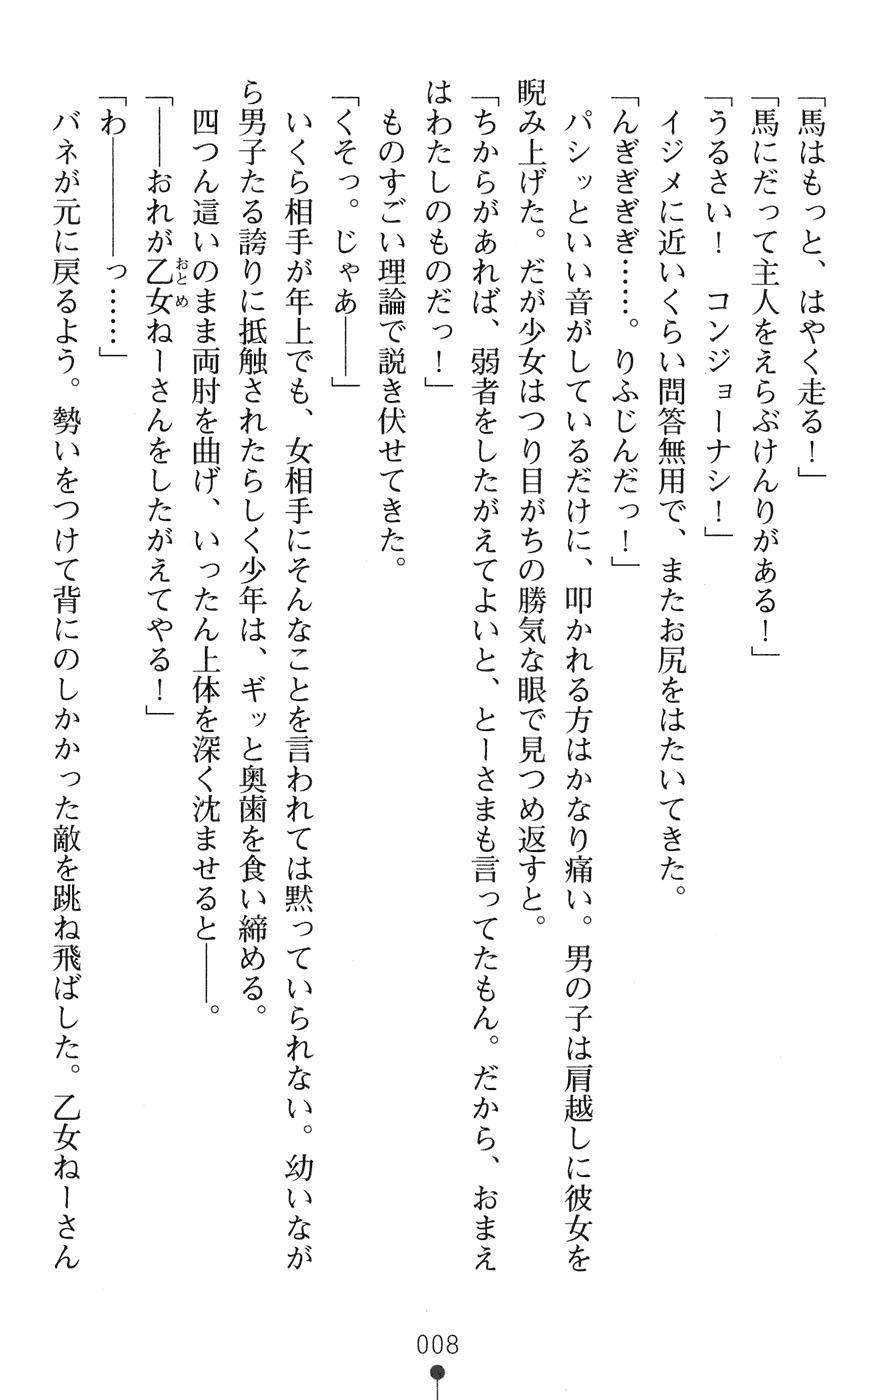 「馬はもっと、はやく走る！」
「馬にだって主人をえらぶけんりがある！」
「うるさい！　コンジョーナシ！」
　イジメに近いくらい問答無用で、またお尻をはたいてきた。
「んぎぎぎぎ……。りふじんだっ！」
　パシッといい音がしているだけに、叩かれる方はかなり痛い。男の子は肩越しに彼女を
睨み上げた。だが少女はつり目がちの勝気な眼で見つめ返すと。
「ちからがあれば、弱者をしたがえてよいと、とーさまも言ってたもん。だから、おまえ
はわたしのものだっ！」
　ものすごい理論で説き伏せてきた。
「くそっ。じゃあ――」
　いくら相手が年上でも、女相手にそんなことを言われては黙っていられない。幼いなが
ら男子たる誇りに抵触されたらしく少年は、ギッと奥歯を食い締める。
　四つん這いのまま両肘を曲げ、いったん上体を深く沈ませると――。
「――おれが乙女ねーさんをしたがえてやる！」
おとめ
「わ――――っ……」
　バネが元に戻るよう。勢いをつけて背にのしかかった敵を跳ね飛ばした。乙女ねーさん
008